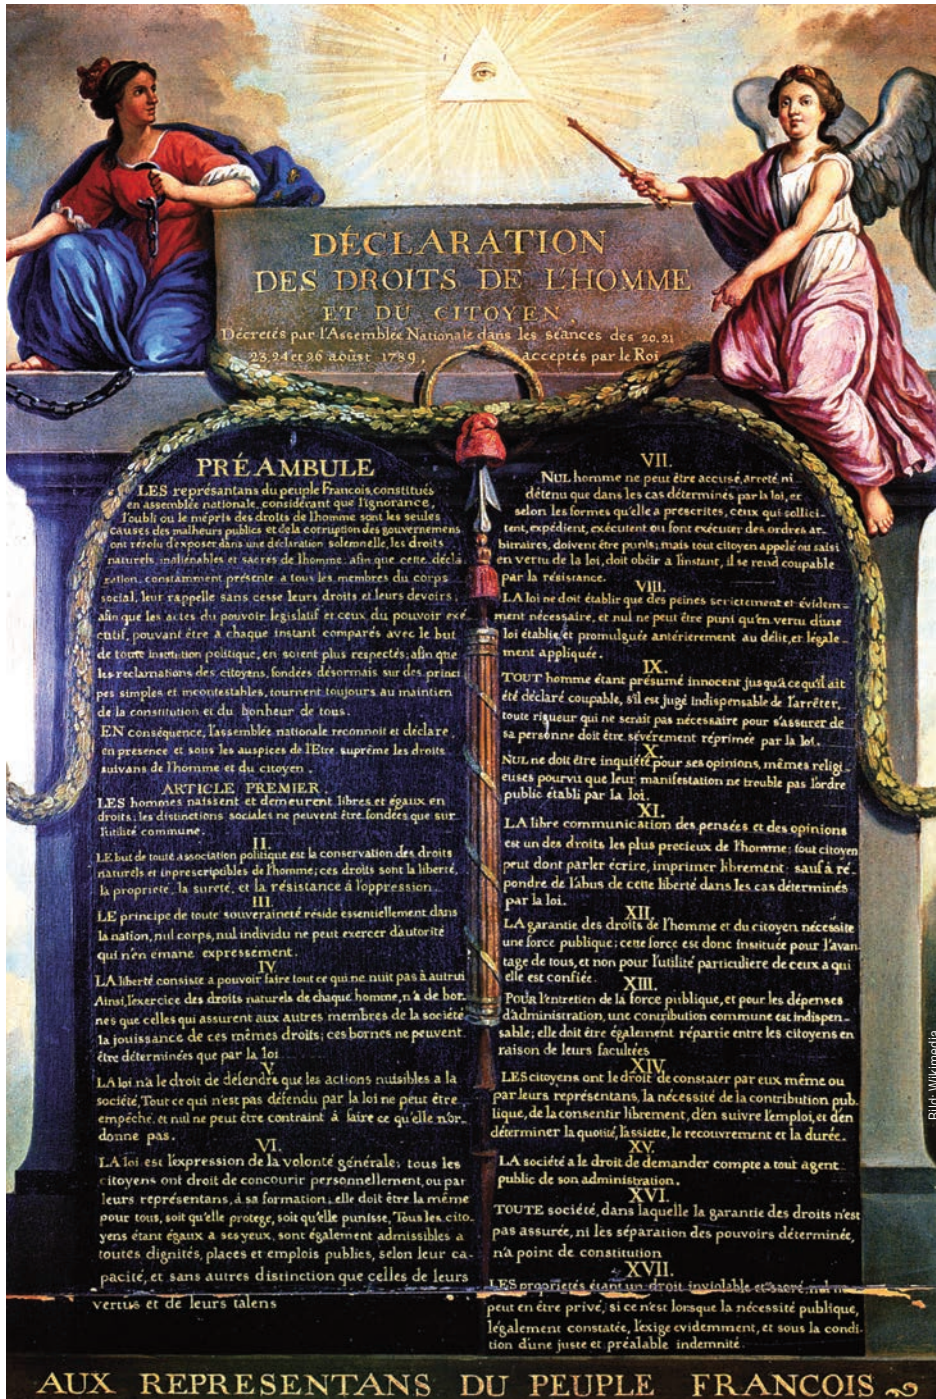 DÉCLARATION
DES DROITS DE L'HOMME
ET DU CITOYEN,
Décretés par l'Assemblée Nationale dans les séances des 20, 21
23, 24 et 26 aoûst 1789, acceptés par le Roi
PRÉAMBULE
LES représantans du peuple Francois, constitués
en assemblée nationale, considérant que l'ignorance,
l'oubli ou le mépris des droits de l'homme sont les seules
causes des malheurs publics et de la corruption des gouvernemens
ont résolu d'exposer dans une déclaration solemnelle, les droits
naturels, inaliénables et sacrés de l'homme: afin que cette décla-
ration, constamment présente a tous les membres du corps
social, leur rappelle sans cesse leurs droits et leurs devoirs,
afin que les actes du pouvoir législatif et ceux du pouvoir exé
cutif, pouvant être a chaque instant comparés avec le but
de toute institution politique, en soient plus respectés; afin que
les reclamations des citoyens, fondées désormais sur des princi
pes simples et incontestables, tournent toujours au maintien
de la constitution et du bonheur de tous.
EN conséquence, l'assemblée nationale reconnoit et déclare
en presence et sous les auspices de l'Etre suprême les droits
suivans de l'homme et du citoyen.
ARTICLE PREMIER.
LES hommes naissent et demeurent libres et égaux en
droits; les distinctions sociales ne peuvent être fondées que sur
l'utilité commune.
II.
LE but de toute association politique est la conservation des droits
naturels et inprescriptibles de l'homme; ces droits sont la liberté,
la propriété, la sureté, et la résistance à l'oppression.
III.
LE principe de toute souveraineté réside essentiellement dans
la nation, nul corps, nul individu ne peut exercer d'autorité
qui n'en émane expressement.
IV.
LA liberté consiste a pouvoir faire tout ce qui ne nuit pas à autrui
Ainsi, l'exercice des droits naturels de chaque homme, n'a de bor-
nes que celles qui assurent aux autres membres de la société
la jouissance de ces mêmes droits; ces bornes ne peuvent
être déterminées que par la loi
V.
LA loi n'a le droit de défendre que les actions nuisibles a la
société, Tout ce qui n'est pas défendu par la loi ne peut être
empêché, et nul ne peut être contraint à faire ce qu'elle n'or-
donne pas.
VI.
LA loi est l'expression de la volonté générale; tous les
citoyens ont droit de concourir personnellement, ou par
leurs représentans, à sa formation; elle doit être la même
pour tous, soit qu'elle protege, soit qu'elle punisse, Tous les cito-
yens étant égaux a ses yeux, sont également admissibles a
toutes dignités, places et emplois publics, selon leur ca-
pacité, et sans autres distinction que celles de leurs
vertus et de leurs talens
VII.
NUL homme ne peut être accusé, arreté ni
détenu que dans les cas déterminés par la loi, et
selon les formes qu'elle a prescrites, ceux qui sollici-
tent, expédient, exécutent ou font exécuter des ordres ar-
bitraires, doivent être punis; mais tout citoyen appelé ou saisi
en vertu de la loi, doit obéir a l'instant, il se rend coupable
par la résistance.
VIII.
LA loi ne doit établir que des peines strictement et évidem-
ment nécessaire, et nul ne peut être puni qu'en vertu d'une
loi établie et promulguée antérierement au délit, et légale-
ment appliquée.
IX.
TOUT homme étant présumé innocent jusqu'à ce qu'il ait
été déclaré coupable, s'il est jugé indispensable de l'arrêter,
toute rigueur qui ne serait pas nécessaire pour s'assurer de
sa personne doit être sévèrement réprimée par la loi.
X.
NUL ne doit être inquiété pour ses opinions, mêmes religi-
euses pourvu que leur manifestation ne trouble pas l'ordre
public établi par la loi.
XI.
LA libre communication des pensées et des opinions
est un des droits les plus precieux de l'homme; tout citoyen
peut dont parler écrire, imprimer librement: sauf à ré-
pondre de l'abus de cette liberté dans les cas déterminés
par la loi.
XII.
LA garantie des droits de l'homme et du citoyen nécessite
une force publique; cette force est donc instituée pour l'avan-
tage de tous, et non pour l'utilité particuliere de ceux a qui
elle est confiée.
XIII.
POUR l'entretien de la force publique, et pour les dépenses
d'administration, une contribution commune est indispen-
sable; elle doit être également répartie entre les citoyens en
raison de leurs facultées
XIV.
LES citoyens ont le droit de constater par eux même ou
par leurs représentans, la nécessité de la contribution pub-
lique, de la consentir librement, d'en suivre l'emploi, et d'en
déterminer la quotité, l'assiette, le recouvrement et la durée.
XV.
LA société a le droit de demander compte a tout agent
public de son administration.
XVI.
TOUTE société, dans laquelle la garantie des droits n'est
pas assurée, ni les séparation des pouvoirs déterminée,
n'a point de constitution
XVII.
LES propriétés étant un droit inviolable et sacré, nul ne
peut en être privé, si ce n'est lorsque la nécessité publique,
légalement constatée, l'exige evidemment, et sous la condi-
tion d'une juste et préalable indemnité.
AUX REPRESENTANS DU PEUPLE FRANCOIS
Bild: Wikimedia